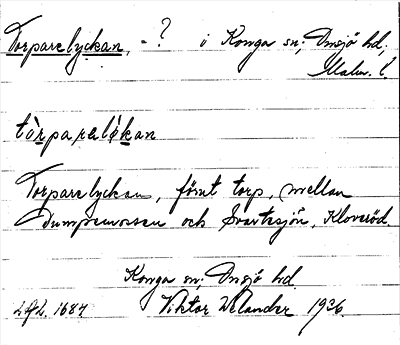 Torparelyckan, - ? i Konga sn; Onsjö hd,
Malm. l.
tòrparelỳkan
Torparelyckan, förut torp, mellan
Dumpemossen och Svartesjön, Kloveröd.
Konga sn, Onsjö hd
Viktor Welander 1936.